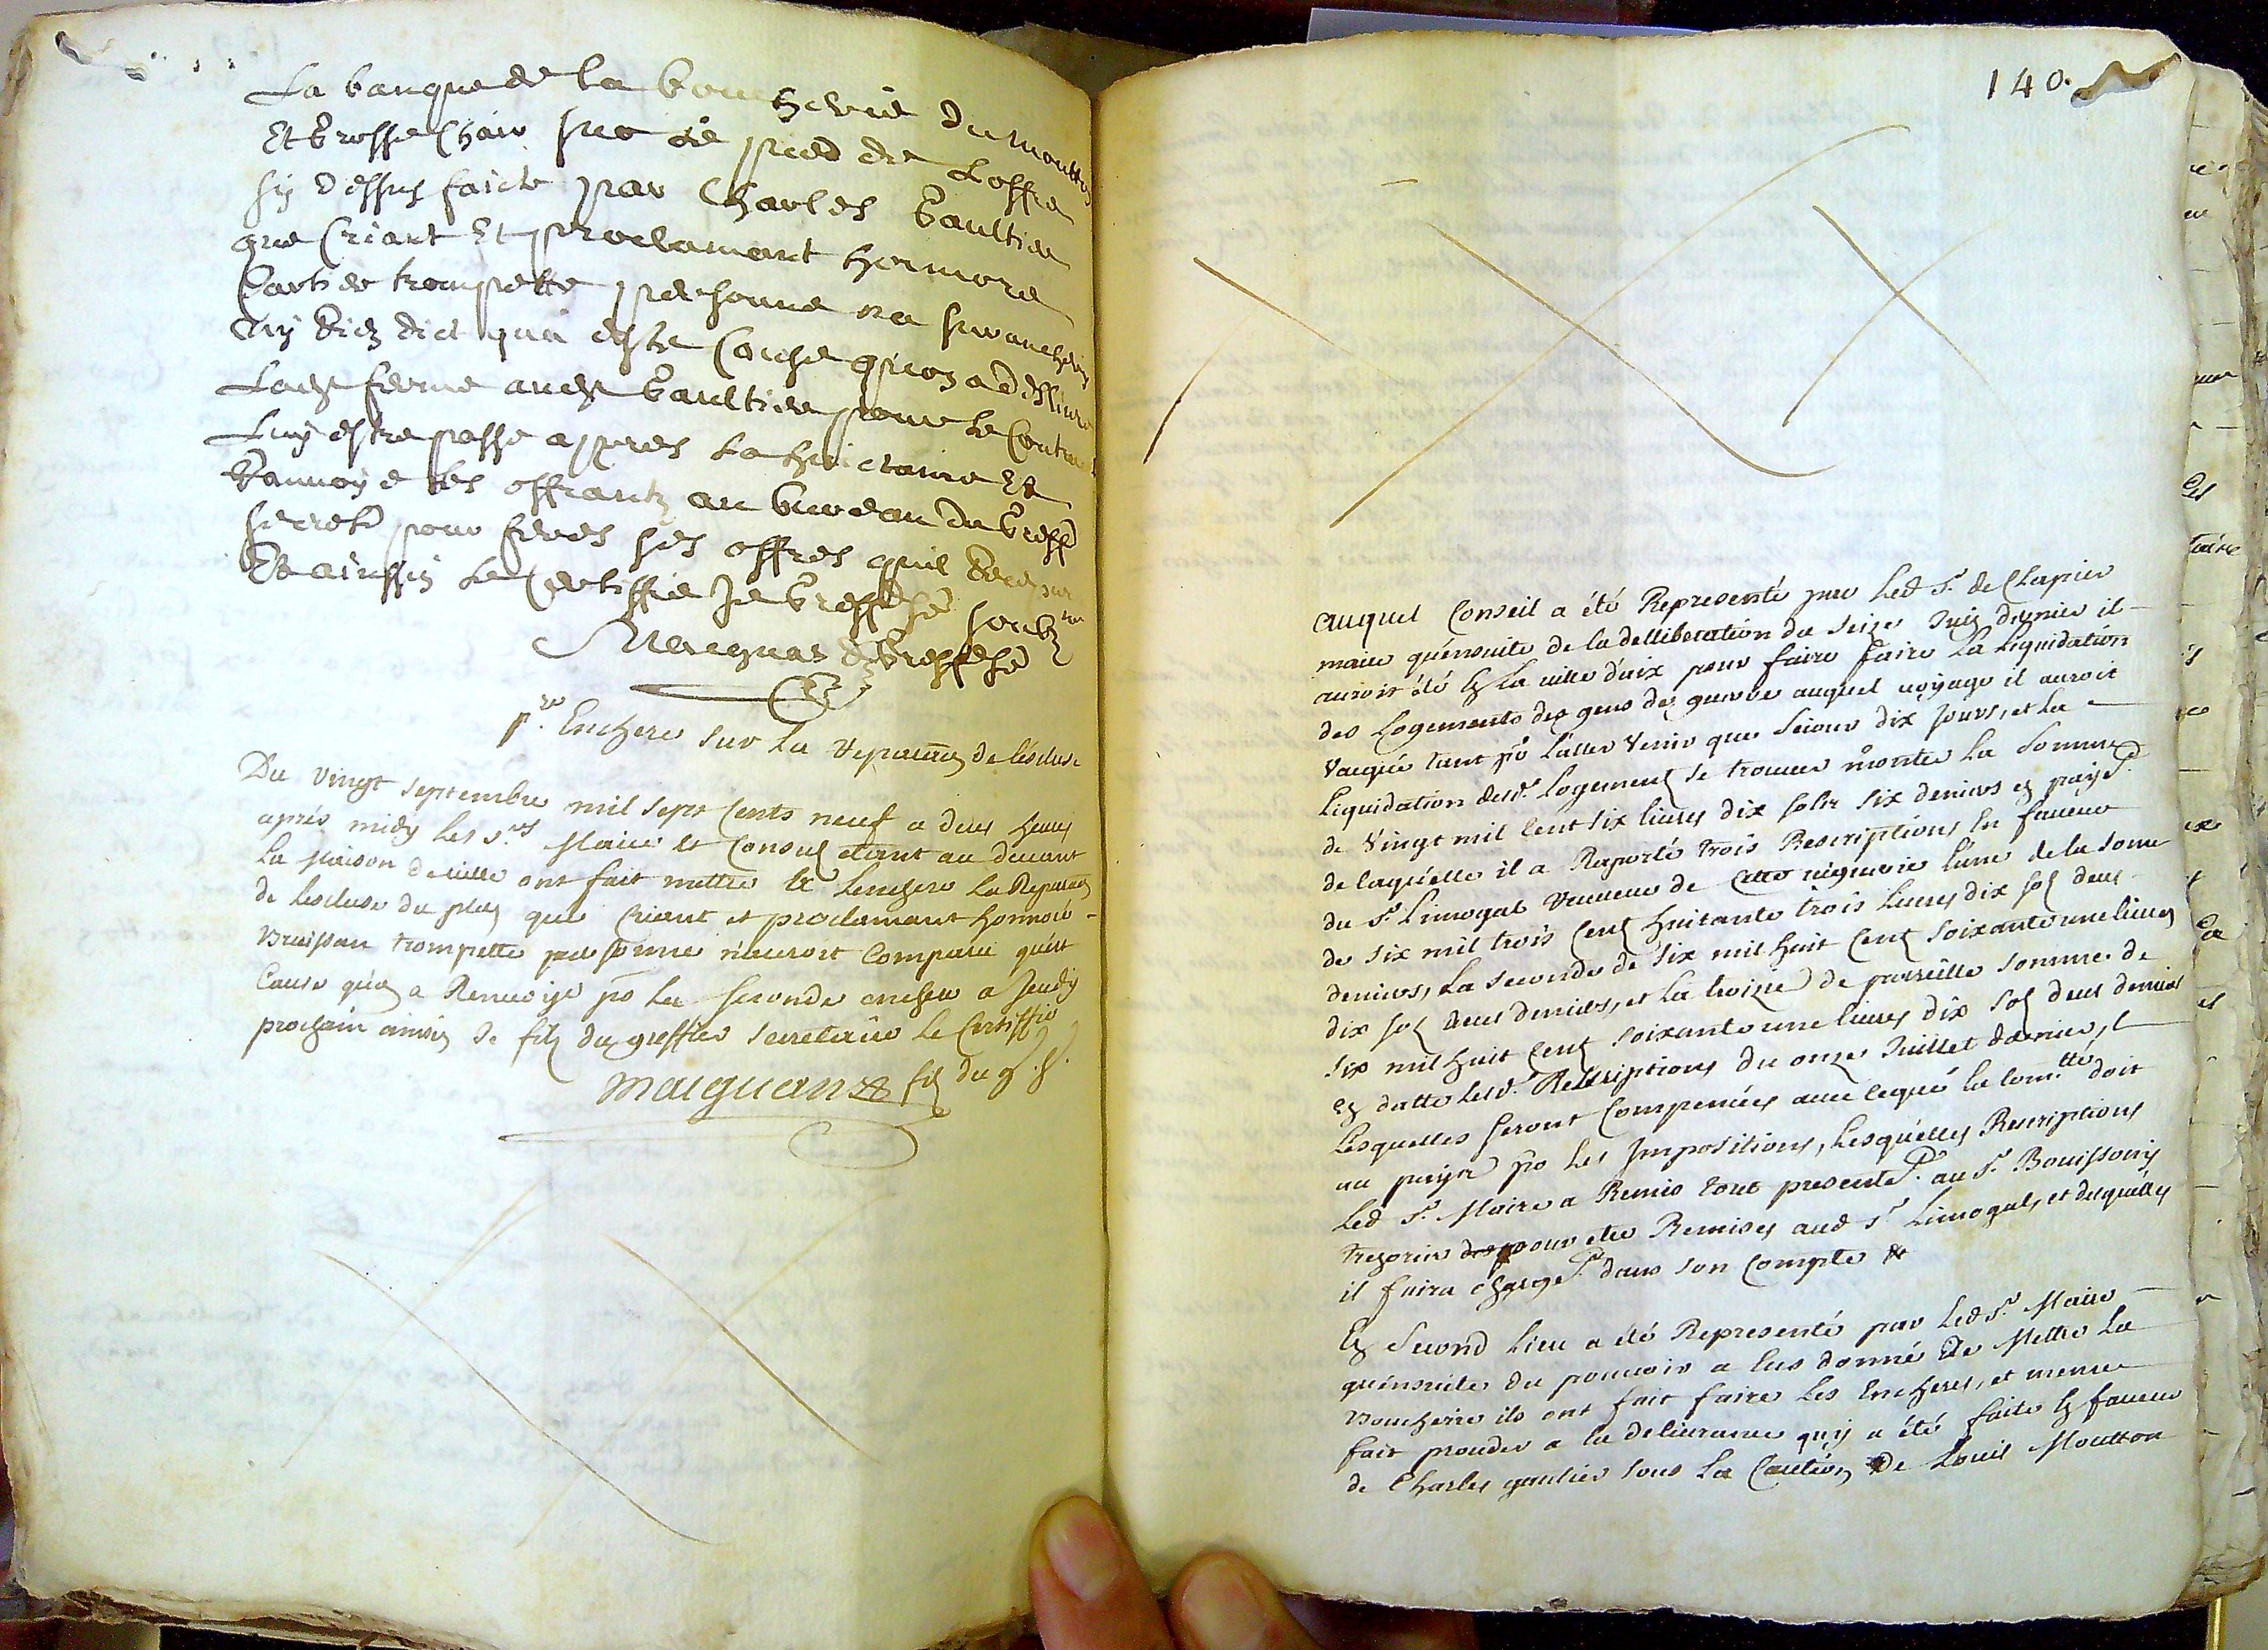 La banque de la boucherie du moutton
Et Grosse Chair sur le pied de Loffre
sy dessus faicte par Charles Gaultier
que Criant Et proclamant honnoré
Cartier trompette personne na
quà esté Cause quon a
Lade ferme aude Gaultier pour le Contrat
Luy estre passé appres La huictaine Et
Ranvoyé les offrantz au bureau du Greffe
secret pour feres ses offres quil
Et ainssin Le Certiffie Je Greffier soubz.né
Maignan Greffier
p.re Enchere sur La reparaon de lescluse
Du vingt septembre mil sept Cents neuf a deux heures
aprés midy les s.rs Maire et Consul etant au devant
La Maison de ville ont fait mettre a Lenchere La Reparaon
de Lescluse du plan que Criant et proclamant honnoré
trompette personne n'auroit Comparu qu'est
Cause qu'on a Renvoyé po La seconde enchere a Jeudy
prochain ainsin Je filz du greffier secretaire Le Certiffie
Maignan filz du g. s.
140.
auquel Conseil a été Representé par Led S.r de Clapier
maire qu'ensuite de la delliberation du seize Juin dernier il
auroit été en La ville d'aix pour faire faire La Liquidation
des Logements des gens de guerre auquel voyage il auroit
vacqué tant po Laller venir que sejour dix jours, et La
Liquidation desd. Logements se trouver monter La somme
de vingt mil Cent six livres dix solz six deniers en paye.t
de laquelle il a Raporté trois Rescriptions en faveur
du S.r Limogal Receveur de Cette viguerie Lune de la some
de six mil trois Cent huitante trois Livres dix solz deux
deniers, La seconde de six mil huit Cent soixante une livres
dix solz deux deniers, et La troize de pareille somme de
six mil huit Cent soixante une livres dix solz deux deniers
en datte lesd. Rescriptions du onze Juillet dernier,
Lesquelles seront Compensées avec cequé la com.tté doit
au payer po Les Impositions, Lesquelles Rescriptions
Led S.r Maire a Remis tout presente.t au S.r Bouissony
Trezorier pour etre Remises aud S.r Limogal, et desquelles
il faira charge.t dans son Compte
En second Lieu a été Representé par Led S.r Maire
qu'ensuite du pouvoir a Eus donné de Mettre La
Boucherie ils ont fait faire Les Encheres, et meme
fait proceder a la delivrance quy a été faite en faveur
de Charles gautier sous La Caution de Louis Moutton